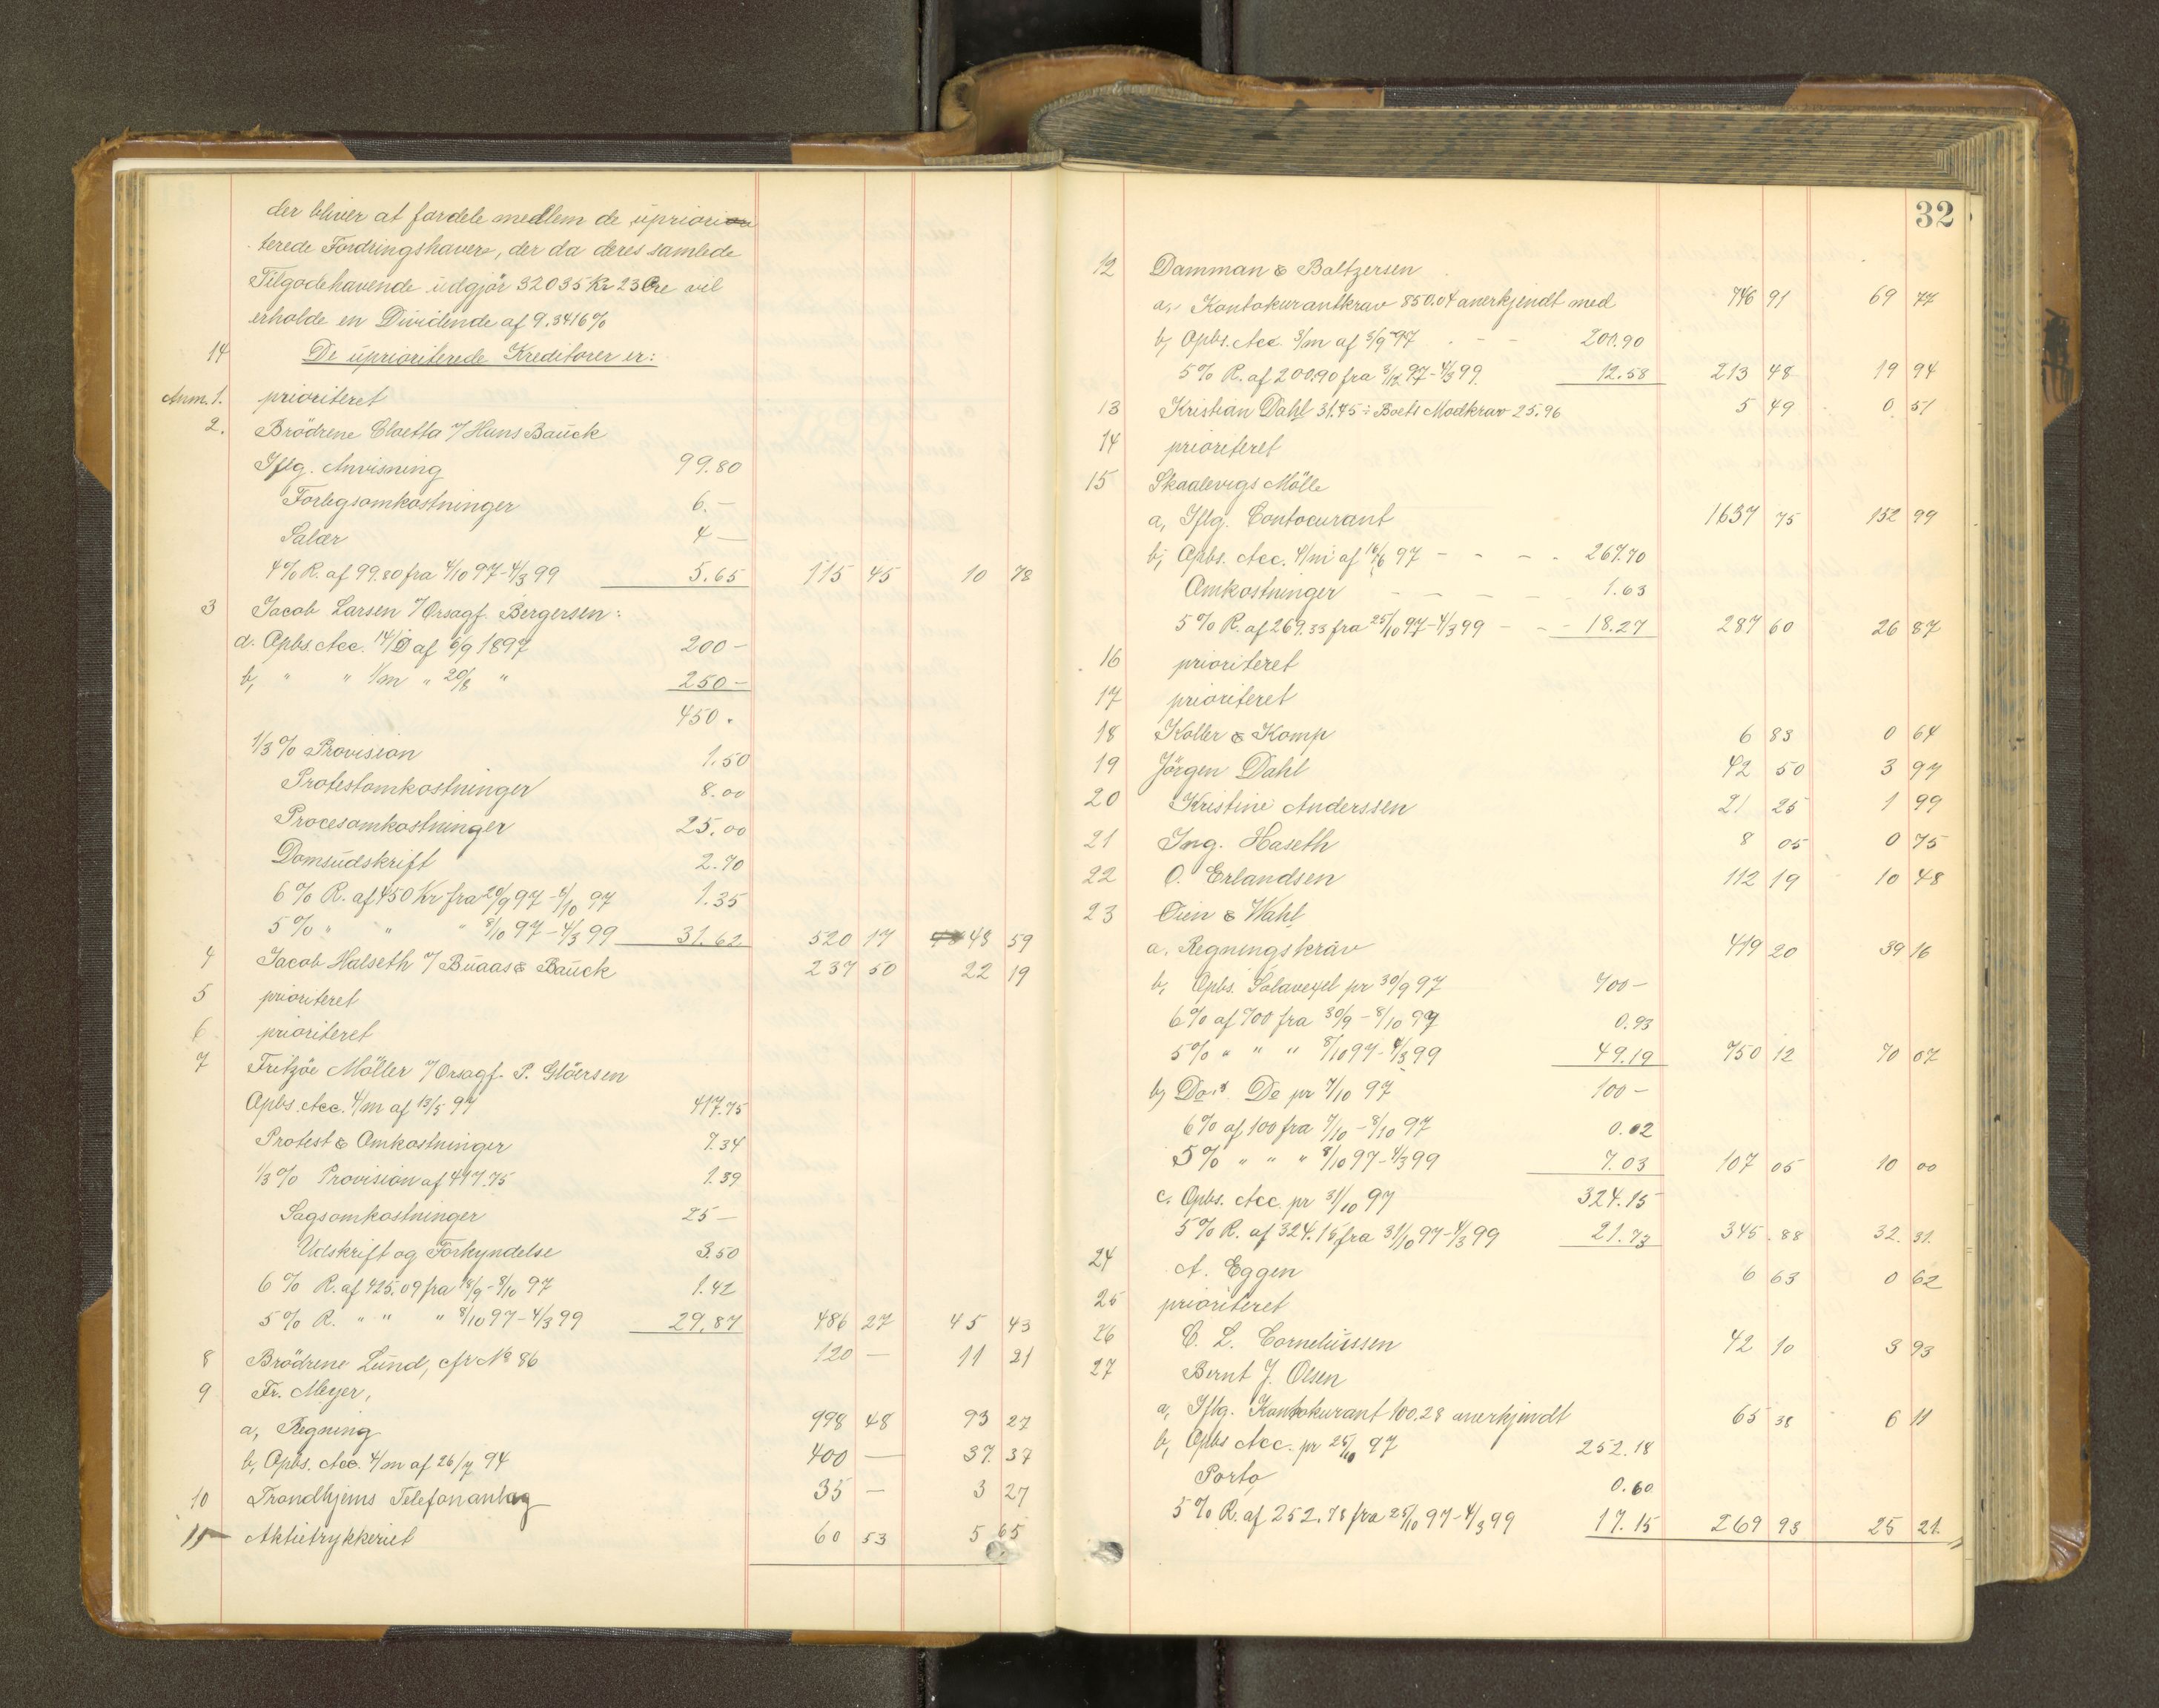 der bliver at fordele mellem de uprior
terede Fordringshavere, der da deres samlede
Tilgodehavende udgjør 32035 Kr 23 Øre vil
erholde en Dividende af 9.3416%
14 De uprioriterede Kreditorer er:
Anm. 1. prioriteret
2. Brödrene Cloetta v/ Hans Bauck
Iflg. Anvisning 99.80
Forlegsomkostninger 6.–
Salær 4 –
4% R. af 99.80 fra 4/10 97-4/3 99 5.65 115 45 10 78
3 Jacob Larsen v/ Orsagf. Bergersen:
a. Opbs. Acc. 14/D af 6/9 1897 200 –
b, " " 1/m " 20/8 " 250 –
450 .
1/3 % Provision 1.50
Protestomkostninger 8.00
Procesomkostninger 25.00
Domsudskrift 2.70
6% R. af 450 Kr fra 20/9 97 - 8/10 97 1.35
5% " " " 8/10 97-4/3 99 31.62 520 17 48 59
4 Jacob Halseth v/ Buaas & Bauck 237 50 22 19
5 prioriteret
6 prioriteret
7 Fritzøe Möller v/ Orsagf. P. Gløersen
Opbs. Acc. 4/m af 13/5 97 417.75
Protest & Omkostninger 7.34
1/3 % Provision af 417.75 1.39
Sagsomkostninger 25 –
Udskrift og Forkyndelse 3.50
6% R. af 425.09 fra 18/9 - 8/10 97 1.42
5% R. " " " 8/10 97-4/3 99 29.87 486 27 45 43
8 Brödrene Lund, cfr No 86 120 – 11 21
9 Fr. Meyer,
a, Regning 998 48 93 27
b, Opbs. Acc. 4/m af 26/7 97 400 – 37. 37
10 Trondhjems Telefonanlæg 35 – 3 27
11 Aktietrykkeriet 60 53 5 65
32
12 Damman & Baltzersen
a, Kontokurantkrav 850.04 anerkjendt med 746 91 69 77
b, Opbs. Acc. 3/m af 3/9 97 - - 200.90
5% R. af 200.90 fra 3/12 97-4/3 99 12.58 213 48 19 94
13 Kristian Dahl 31.45 ÷ Boets Modkrav 25.96 5 49 0 51
14 prioriteret
15 Skaalevigs Mölle
a, Iflg. Contocurant 1637 75 152 99
b, Opbs. Acc. 4/m af 16/6 97 - - - - 267.70
Omkostninger - - - - - 1.63
5% R. af 269.33 fra 25/10 97-4/3 99 - - - 18.27 287 60 26 87
16 prioriteret
17 prioriteret
18 Koller & Komp 6 83 0 64
19 Jörgen Dahl 42 50 3 97
20 Kristine Anderssen 21 25 1 99
21 Ing. Haseth 8 05 0 75
22 O. Erlandsen 112 19 10 48
23 Øien & Wahl
a. Regningskrav 419 20 39 16
b, Opbs. Solavexel pr 30/9 97 700 –
6% af 700 fra 30/9 - 8/10 97 0.93
5% " " " 8/10 97-4/3 99 49.19 750 12 70 07
b, Do. Do pr 7/10 97 100 –
6% af 100 fra 7/10 - 8/10 97 0.02
5% " " " 8/10 97-4/3 99 7.03 107 05 10 00
c. Opbs. Acc. pr 31/10 97 324.15
5% R. af 324.15 fra 31/10 97-4/3 99 21.73 345 . 88 32. 31.
24 A. Eggen 6 63 0 62
25 prioriteret
26 C. L. Corneliussen 42 10 3 93
27 Bernt J. Olsen
a, Iflg. Kontokurant 100.28 anerkjendt 65 38 6 11
b, Opbs Acc. pr 25/10 97 252.18
Porto 0.60
5% R. af 252.78 fra 25/10 97-4/3 99 17.15 269 93 25 21.